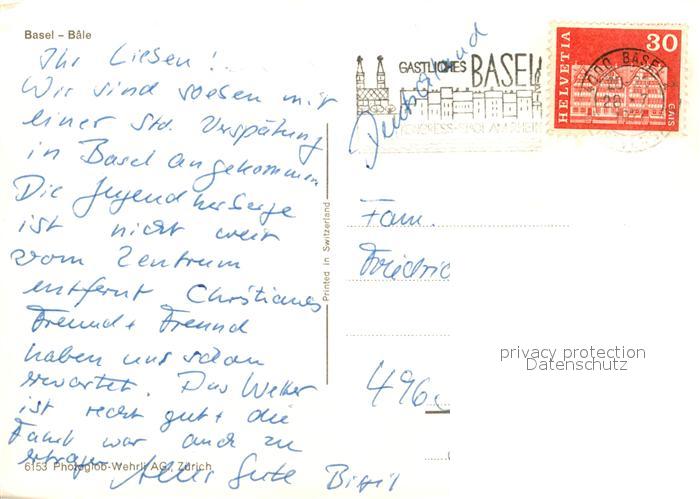 Basel – Bâle
Ihr Lieben!
Wir sind soeben mit
einer Std. Verspätung
in Basel angekommen
Die Jugendherberge
ist nicht weit
vom Zentrum
entfernt Christianes
Freund + Freund
haben uns schon
erwartet. Das Wetter
ist recht gut + die
Fahrt war auch zu
ertragen Alles Gute
6153 Photoglob-Wehrli AG, Zürich
Printed in Switzerland
GASTLICHES BASEL
KONGRESS-STADT AM RHEIN
HELVETIA
30
GAIS
4000 BASEL
Deutschland
Fam.
Friedric
496
privacy protection
Datenschutz